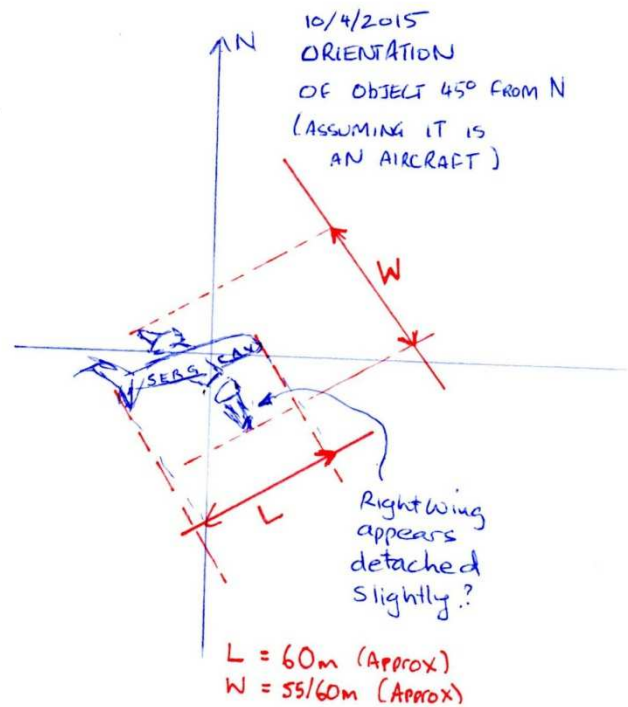 10/4/2015
N
ORIENTATION
OF OBJECT 45° FROM N
(ASSUMING IT IS
AN AIRCRAFT)
W
SERG
L
Right wing
appears
detached
slightly?
L = 60m (Approx)
W = 55/60m (Approx)